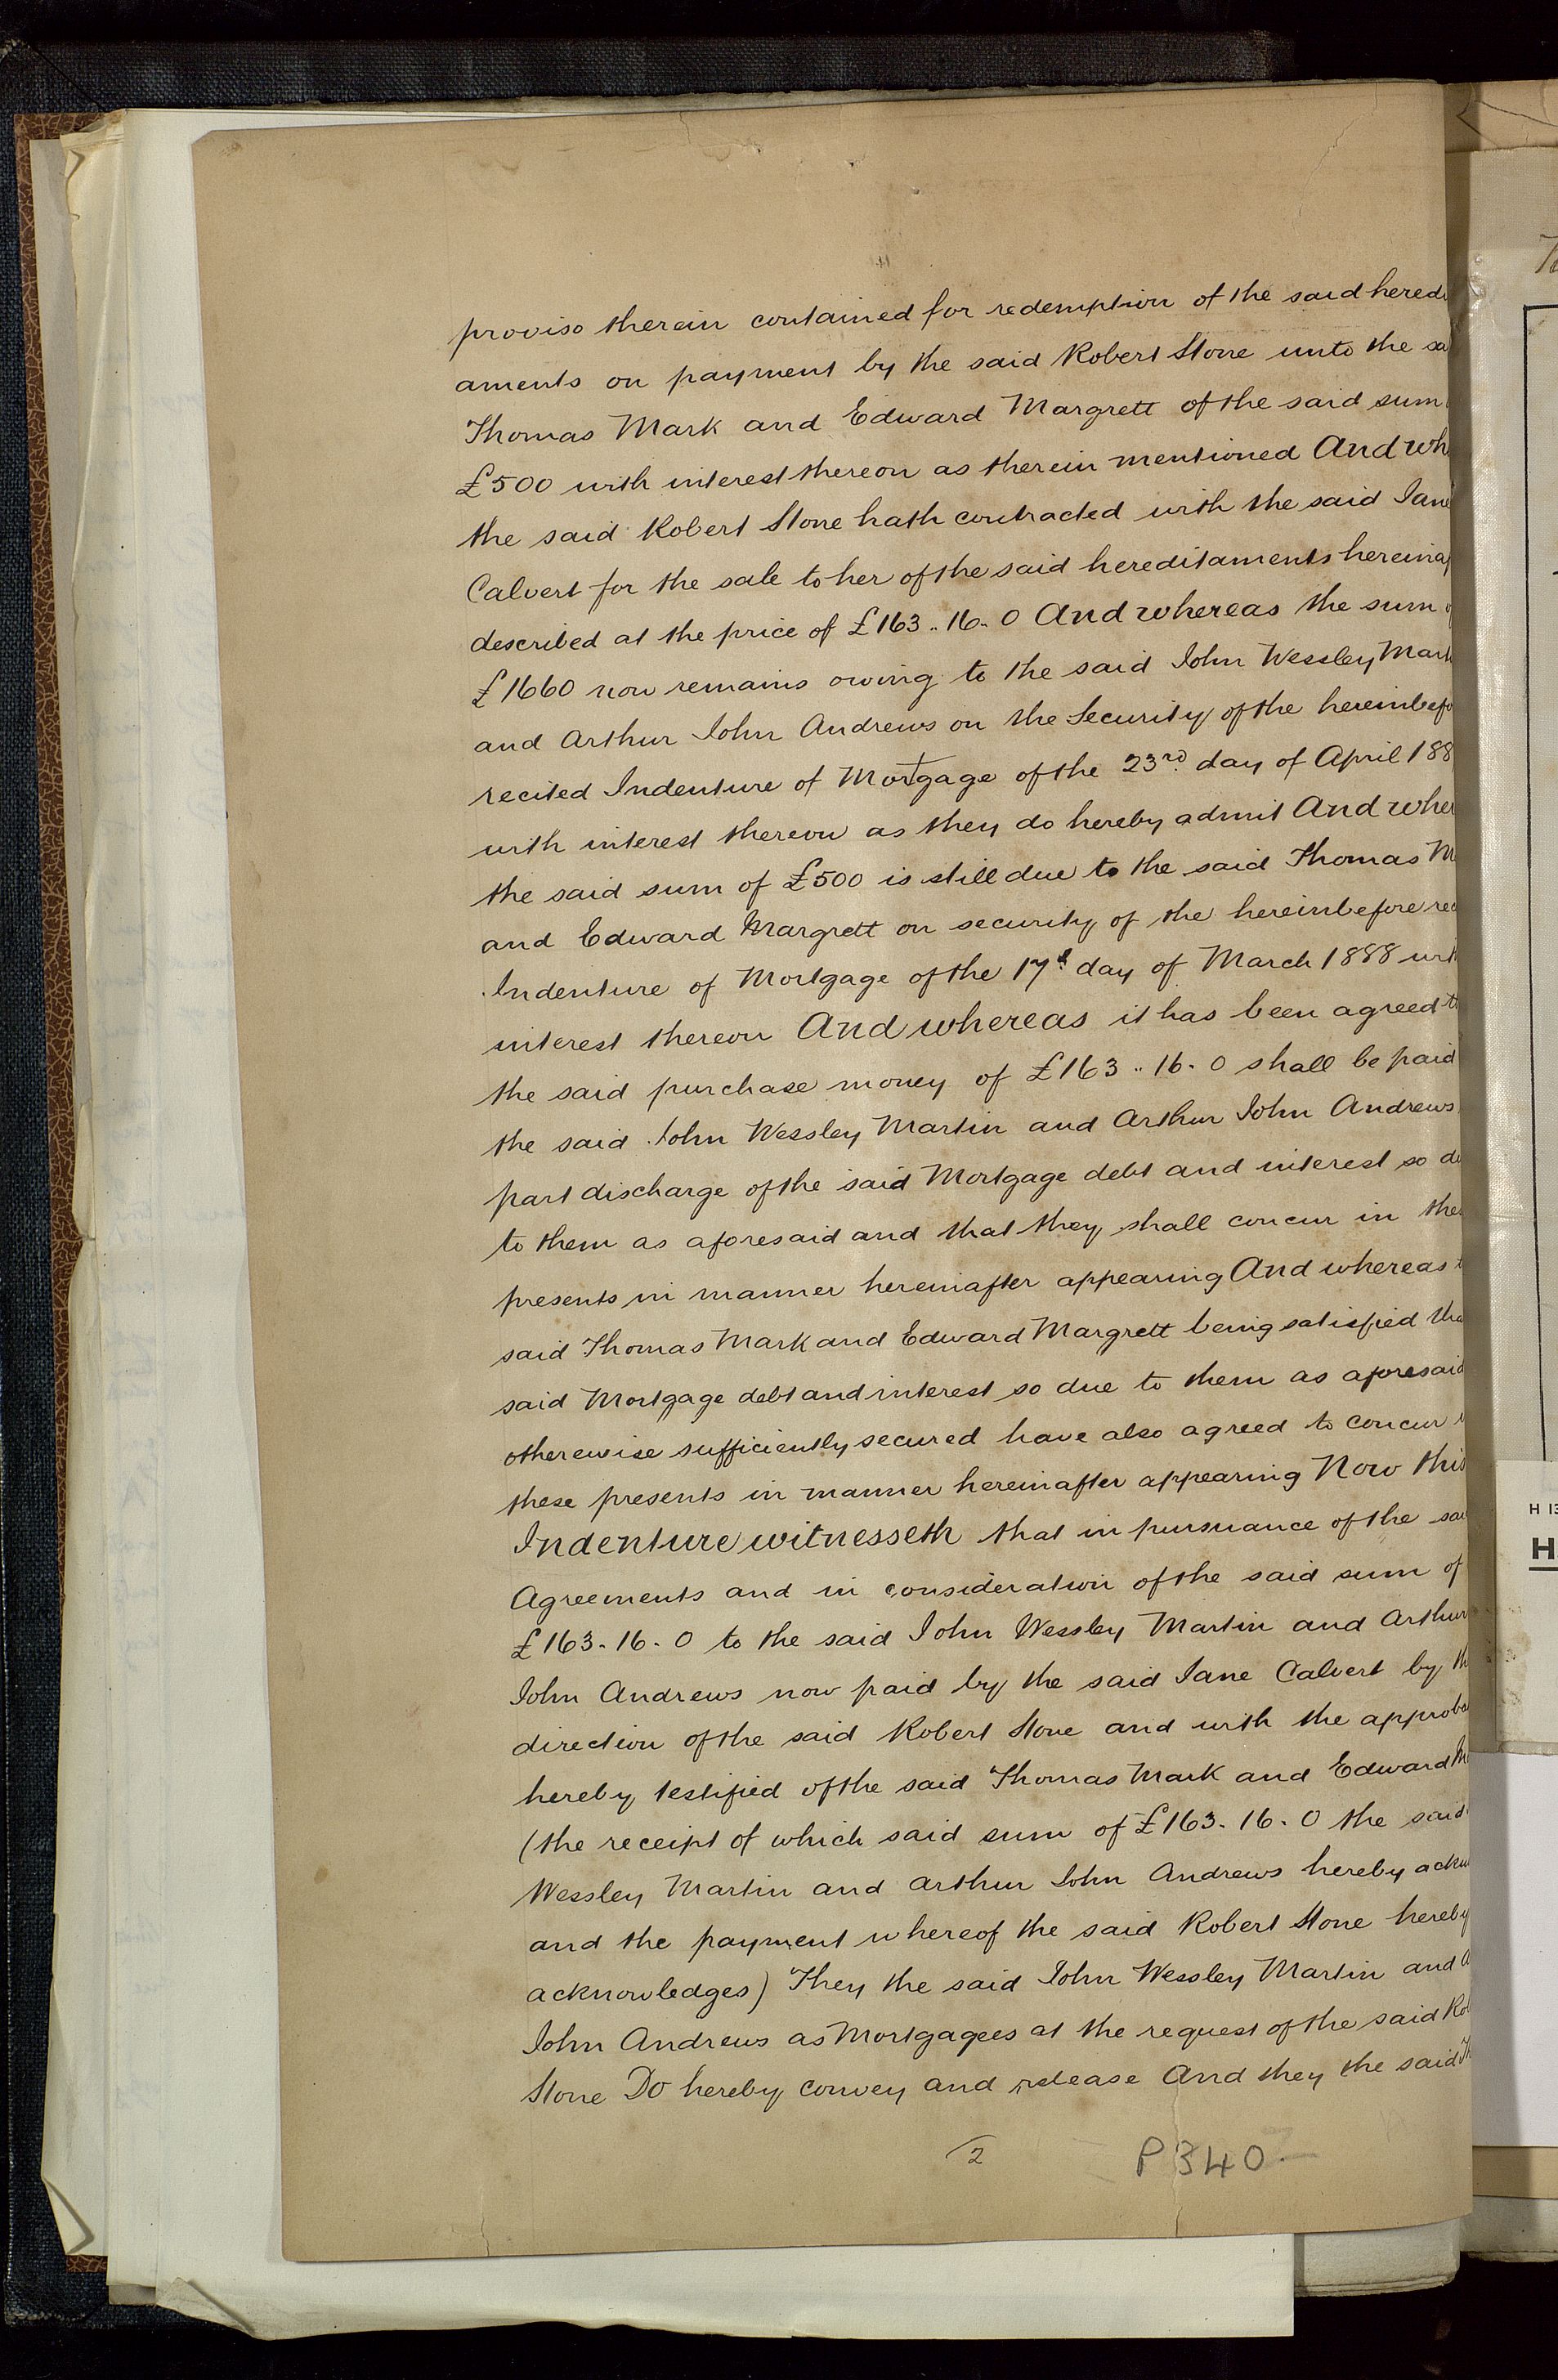 proviso therein contained for redemption of the said heredi
aments on payment by the said Robert Stone unto the sa
Thomas Mark and Edward Margrett of the said sum
£500 with interest thereon as therein mentioned And wh
the said Robert Stone hath contracted with the said Jane
Calvert for the sale to her of the said hereditaments hereinaf
described at the price of £163..16.0 And whereas the sum o
£1660 now remains owing to the said John Wessley Mart
and Arthur John Andrews on the Security of the hereinbefo
recited Indenture of Mortgage of the 23rd day of April 188
with interest thereon as they do hereby admit And wher
the said sum of £500 is still due to the said Thomas M
and Edward Margrett on security of the hereinbefore rec
Indenture of Mortgage of the 17th day of March 1888 with
interest thereon And whereas it has been agreed th
the said purchase money of £163..16.0 shall be paid
the said John Wessley Martin and Arthur John Andrews
part discharge of the said Mortgage debt and interest so du
to them as aforesaid and that they shall concur in the
presents in manner hereinafter appearing And whereas t
said Thomas Mark and Edward Margrett being satisfied tha
said Mortgage debt and interest so due to them as aforesaid
otherewise sufficiently secured have also agreed to concur i
these presents in manner hereinafter appearing Now this
Indenture witnesseth that in pursuance of the sai
Agreements and in consideration of the said sum of
£163.16.0 to the said John Wessley Martin and Arthur
John Andrews now paid by the said Jane Calvert by th
direction of the said Robert Stone and with the approba
hereby testified of the said Thomas Mark and Edward M
(the receipt of which said sum of £163.16.0 the said
Wessley Martin and Arthur John Andrews hereby ackn
and the payment whereof the said Robert Stone hereby
acknowledges) They the said John Wessley Martin and A
John Andrews as Mortgagees at the request of the said Rob
Stone Do hereby convey and release And they the said Th
2
P 340
H 13
H